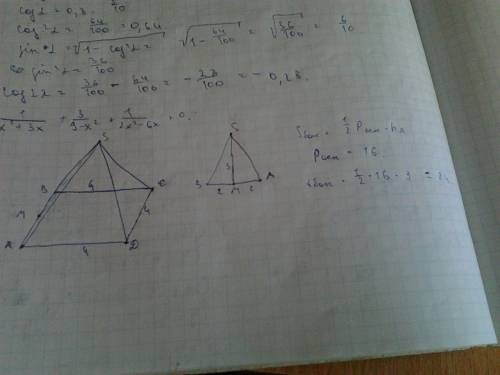 cos L = 0,8. 8/10
cos²L = 64/100 = 0,64
sin L = √(1 - cos²L) = √(1 - 64/100) = √(36/100) = 6/10
sin²L = 36/100
cos 2L = 36/100 - 64/100 = - 28/100 = - 0,28.
1/(x² + 3x) + 3/(9 - x²) + 1/(2x² - 6x) = 0.
S
B 4 C
M
4
A 4 D
S
3
B 2 M 2 A
Sбок = 1/2 Pосн · ha
Pосн = 16
Sбок = 1/2 · 16 · 3 = 24